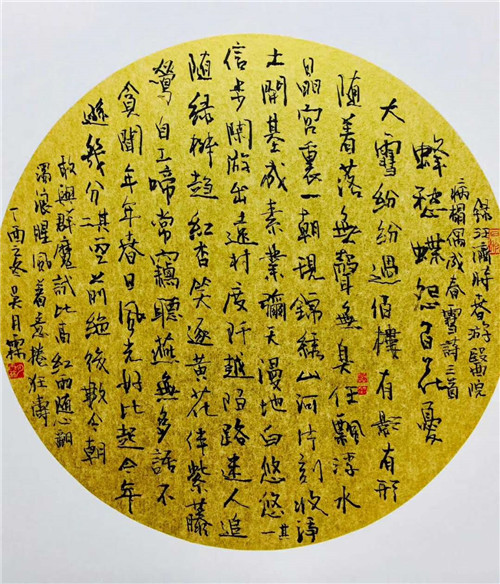 錄汪濟時春游醫院
病榻偶成春雪詩三首
蜂愁蝶怨百花憂
大雪紛紛過伯樓有影有形
随着落無聲無臭任飄浮水
晶宮裏一朝現錦繡山河片刻收
土開基成素業彌天漫地白悠悠其一
信步出遠村度阡越陌路迷人追
随綠柳趨紅杏笑逐黃花伴紫藤
鶯自工啼常竊聽燕無多話不
貪聞年年春日風光好比起今年
遜幾分其二空前絶後數今朝
敢與群魔試比高紅雨随心翻
濁浪腥風着意捲狂濤
丁酉冬吴月霖